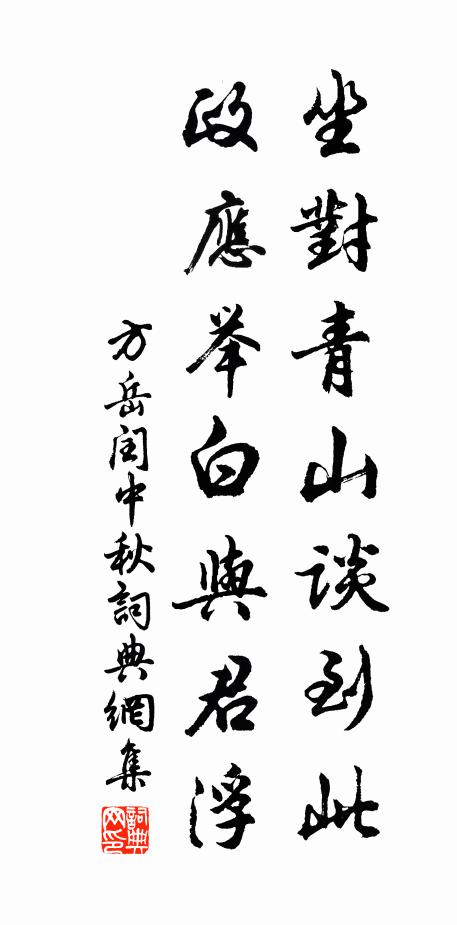 坐對青山談到此
政應举白與君浮
方岳閏中秋詞典網集
詞典网印